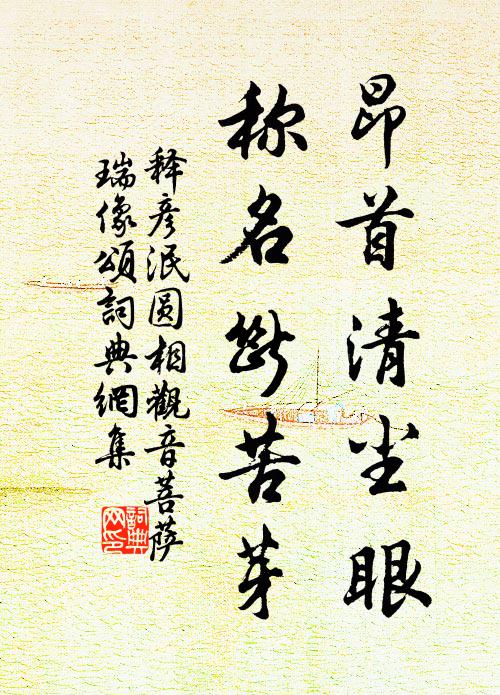 昂首清尘眼
称名断苦芽
释彦泯圆相观音菩萨
瑞像颂词典网集
词典
网印